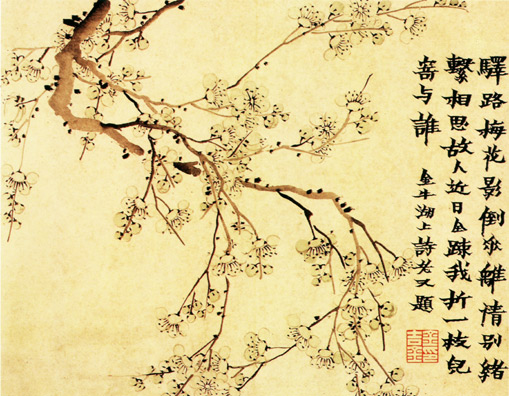 驛路梅花影倒垂離情別緒
繫相思故人近日全踈我折一枝兒
寄与誰
金牛湖上詩老又題